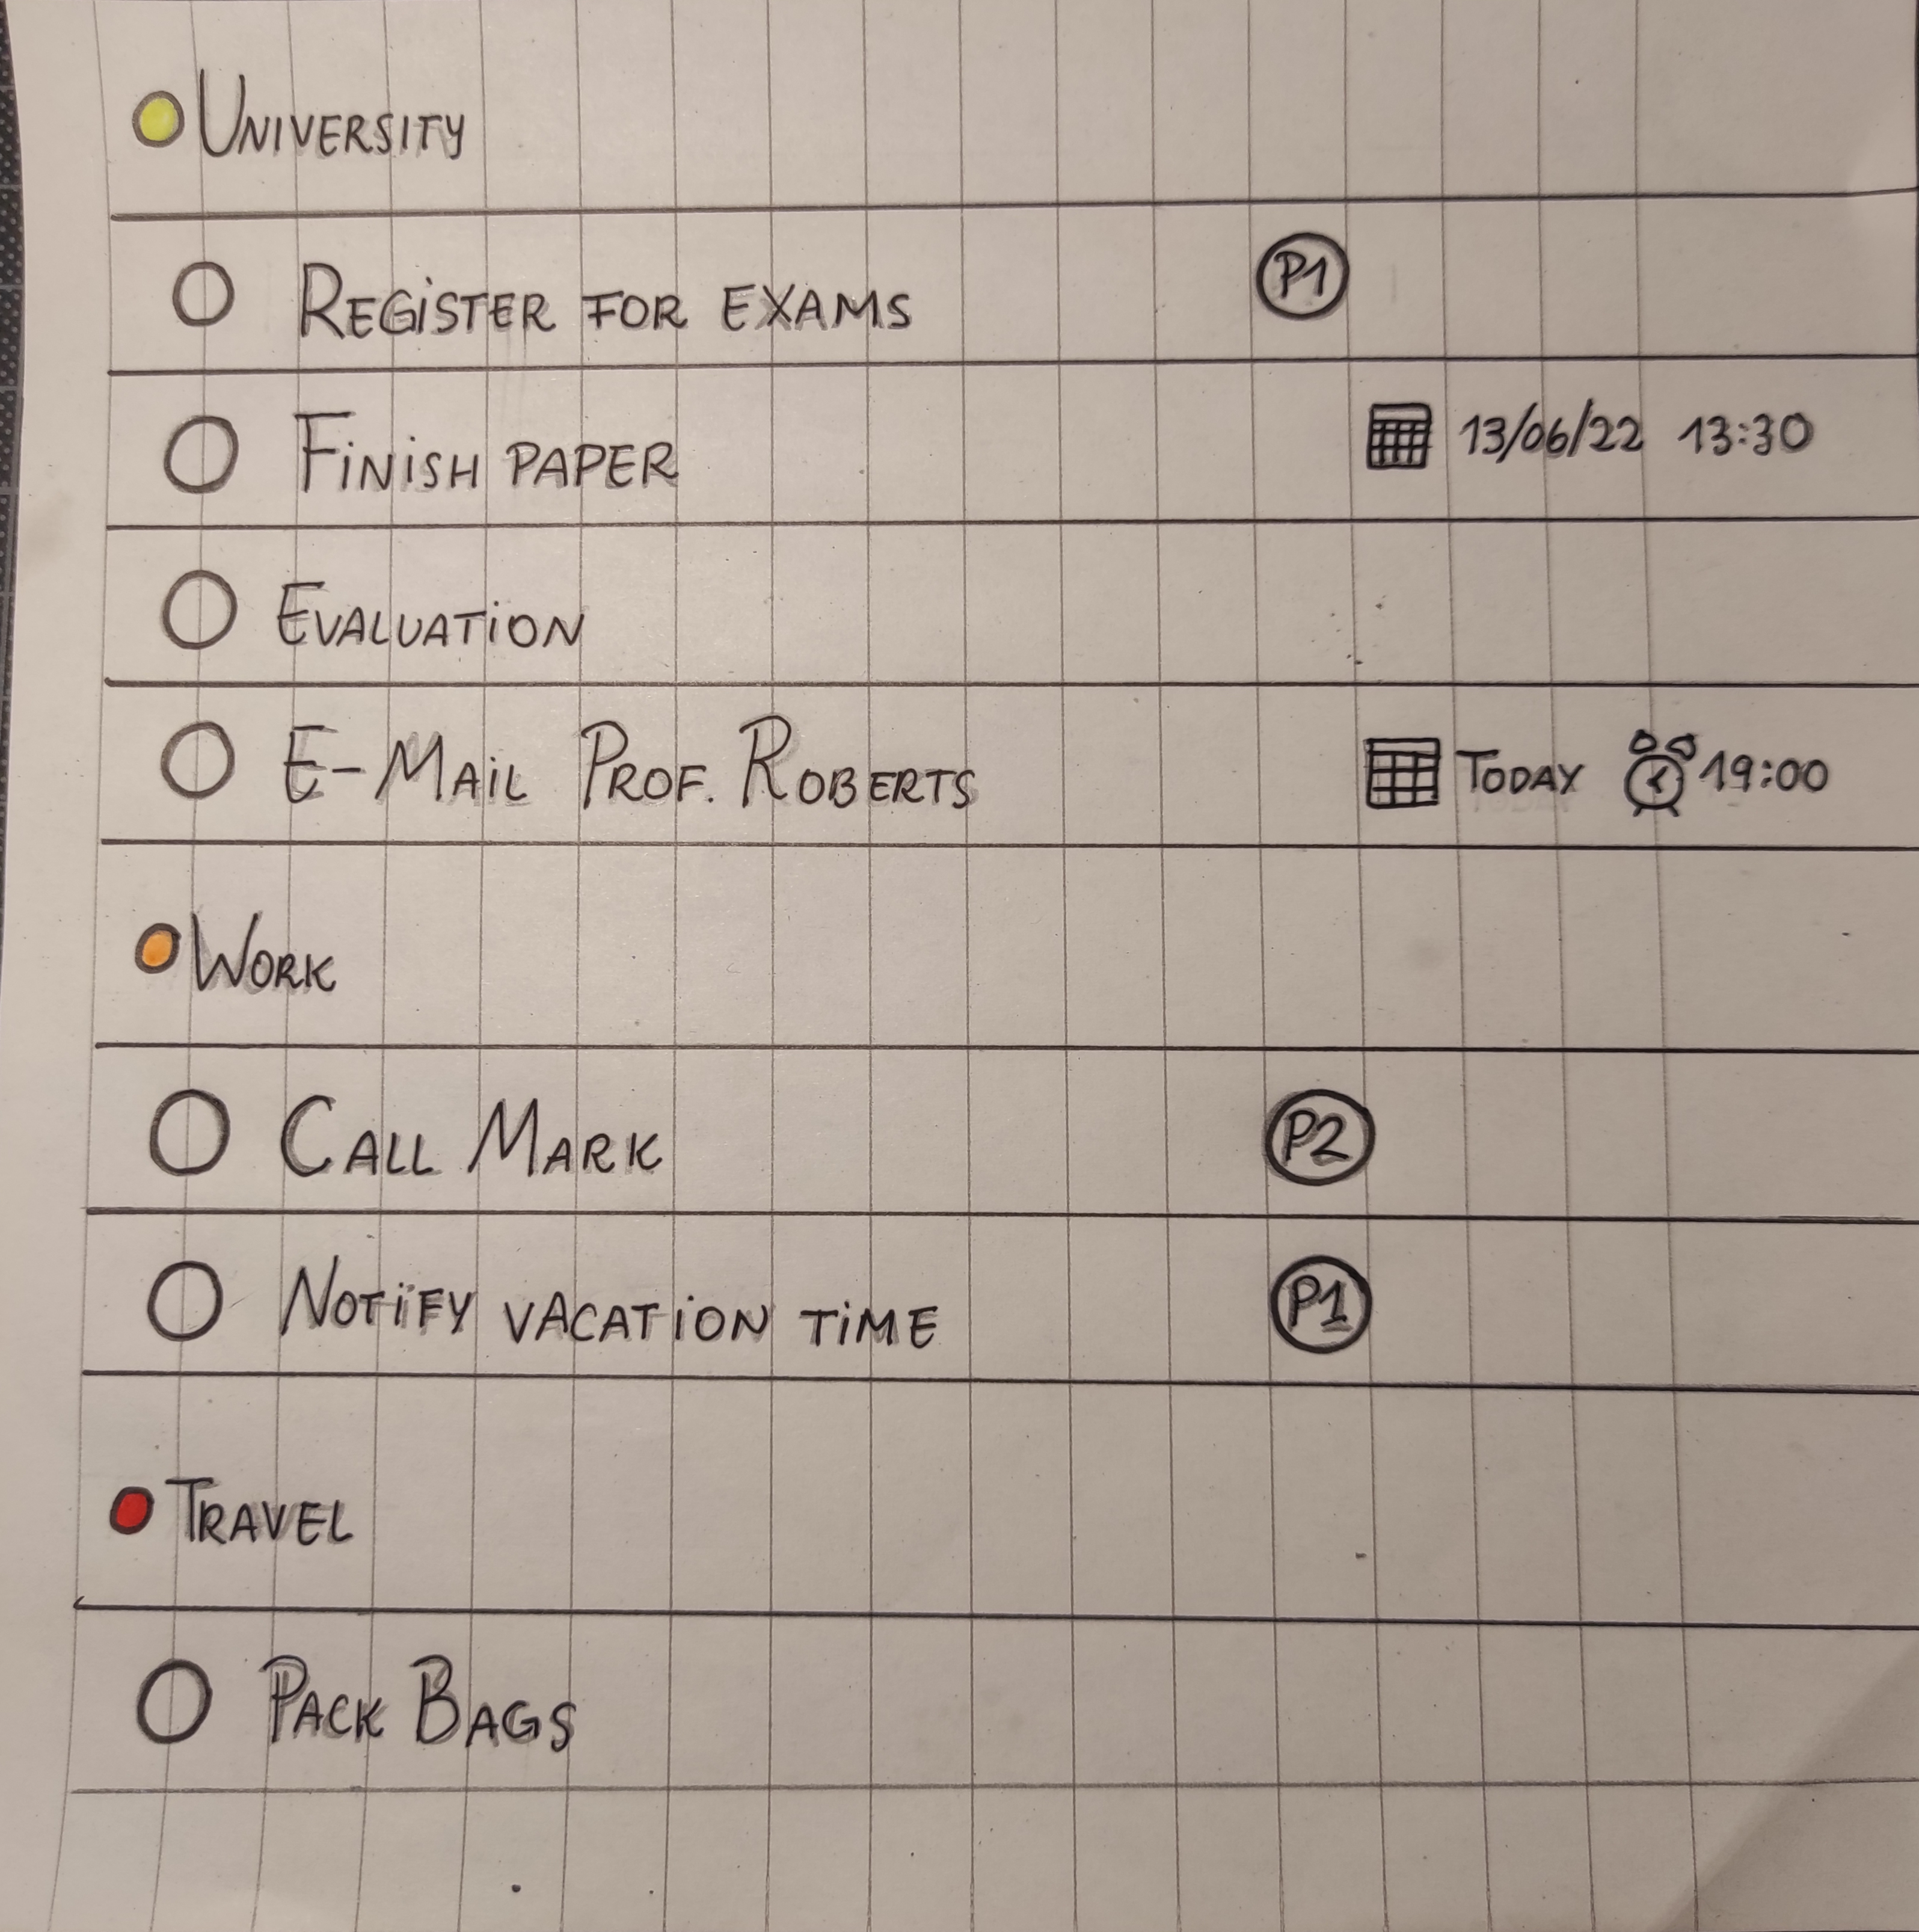 University
Register for exams P1
Finish paper 13/06/22 13:30
Evaluation
E-Mail Prof. Roberts Today 19:00
Work
Call Mark P2
Notify vacation time P1
Travel
Pack Bags